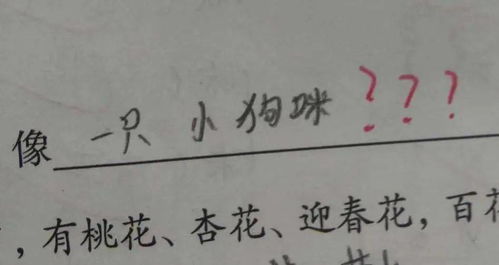 像一只小狗咪???
，有桃花、杏花、迎春花，百花